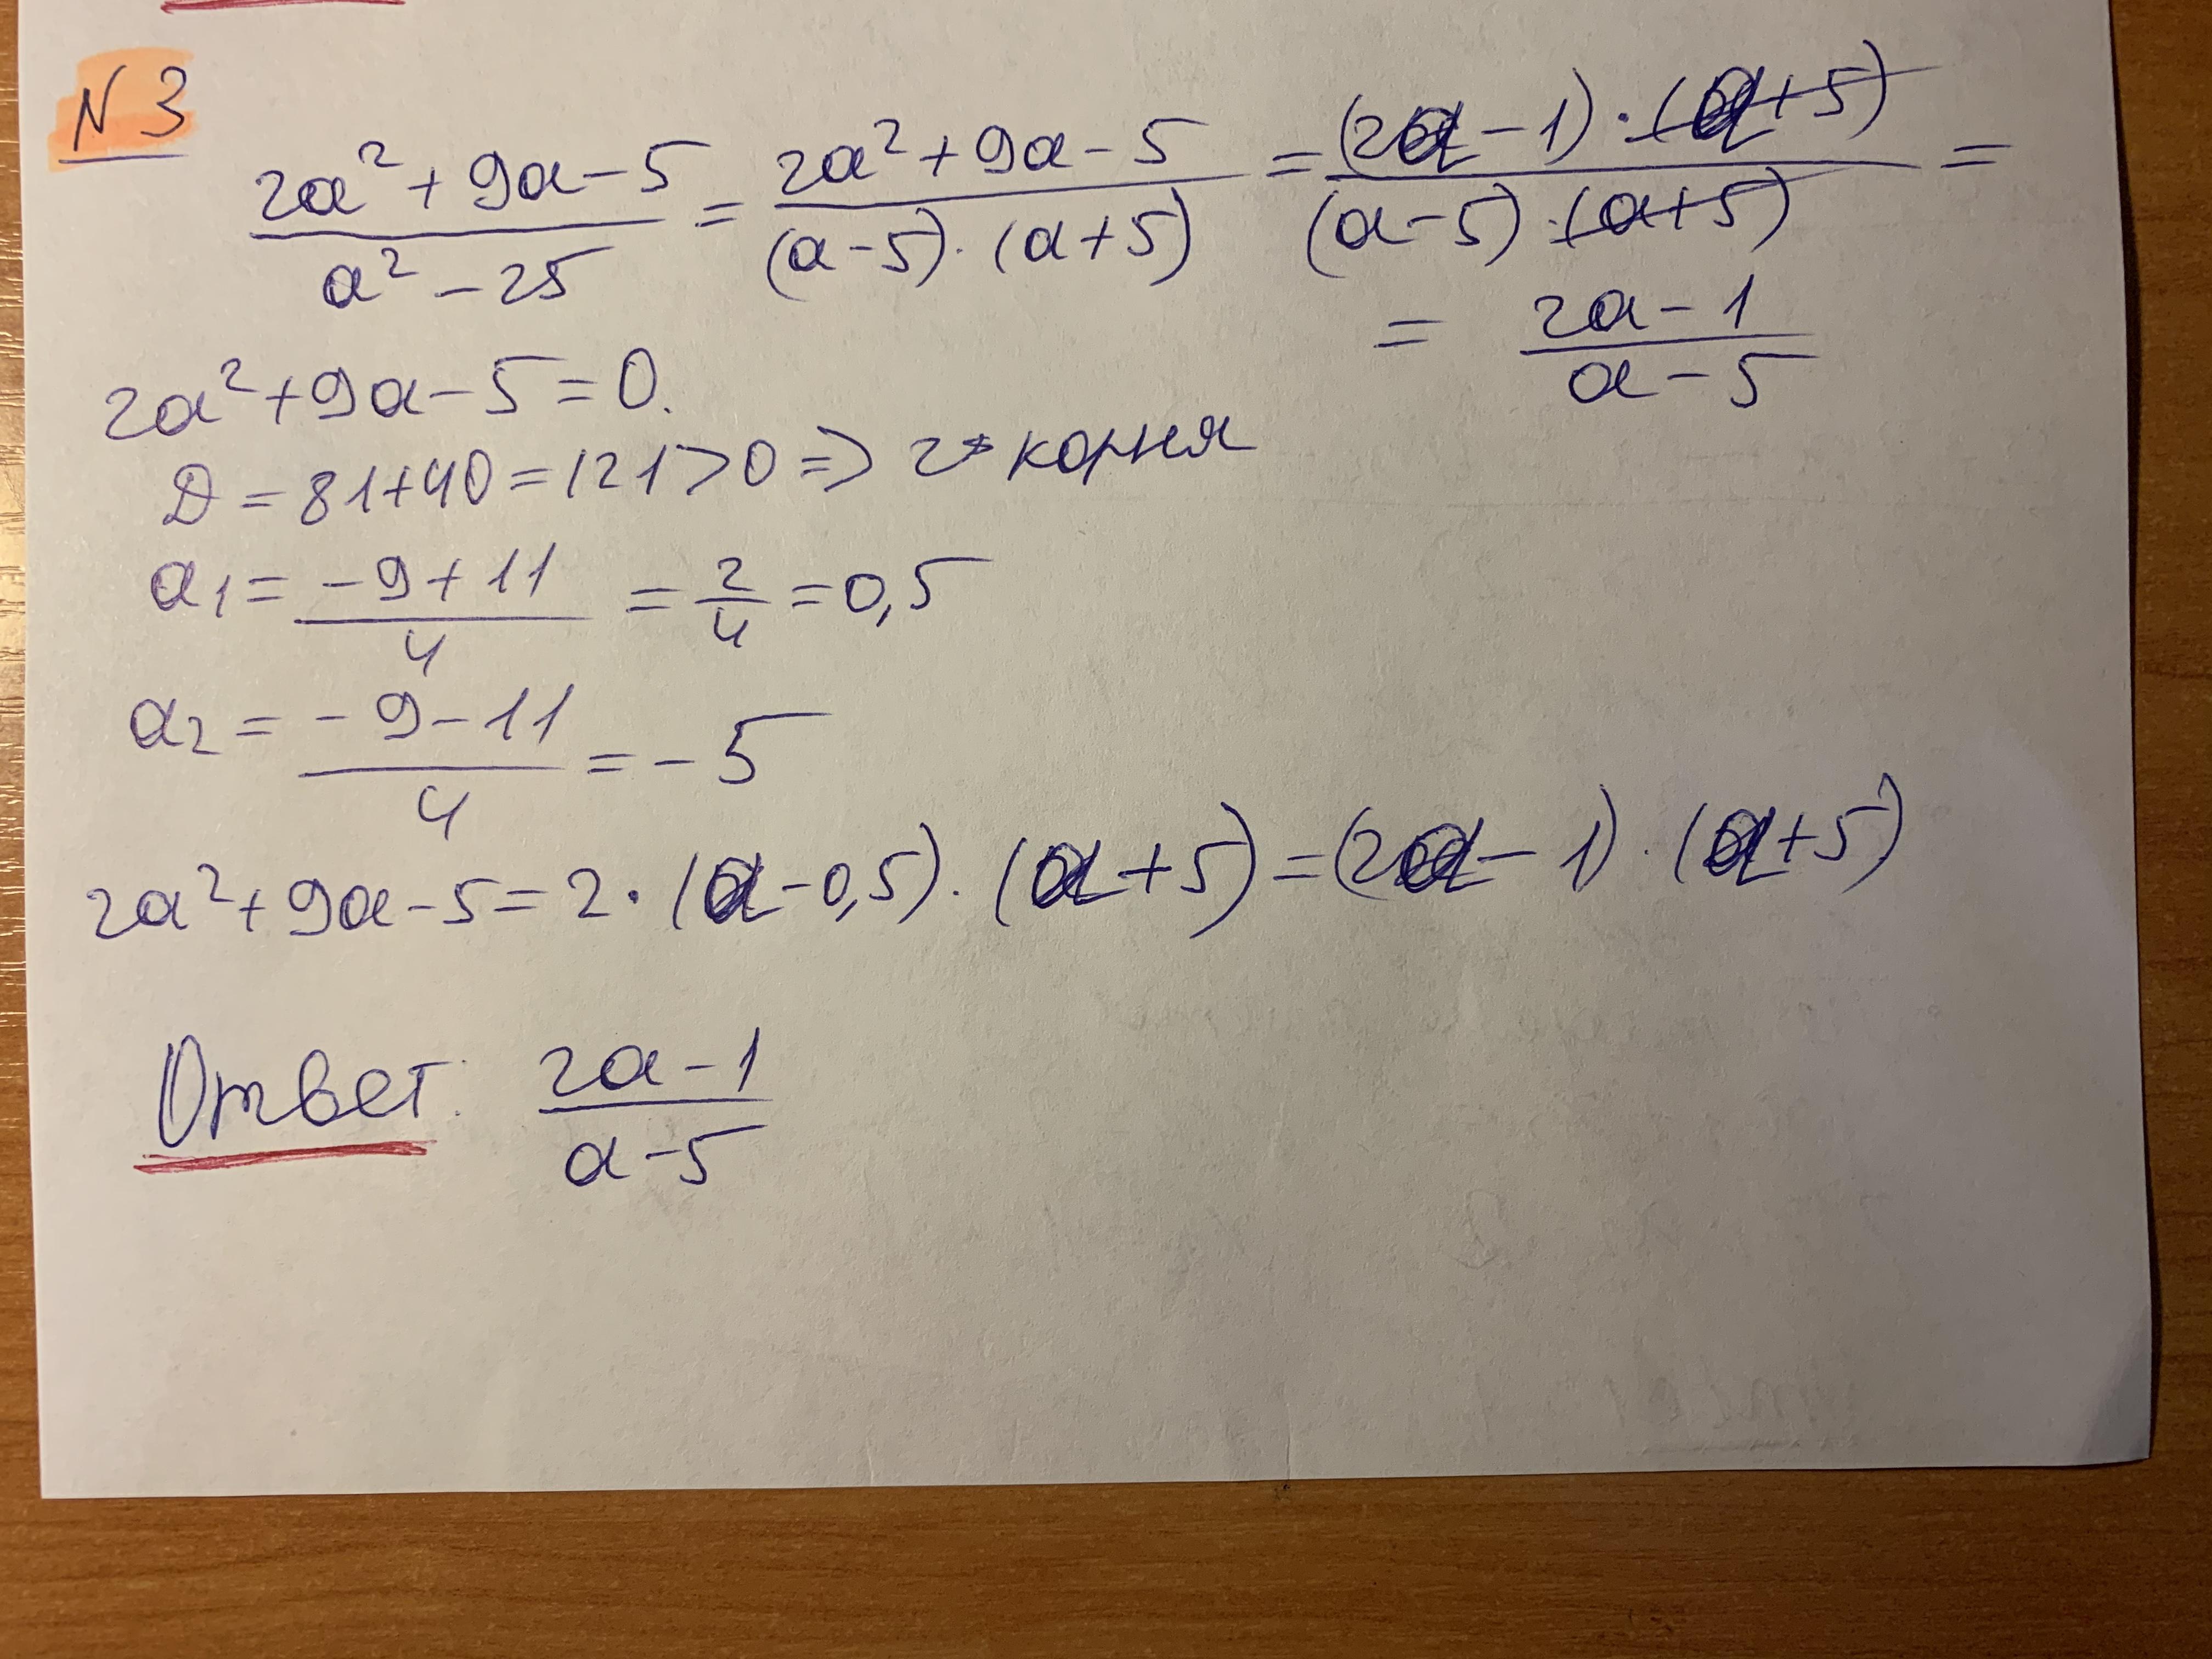 N 3
(2a² + 9a - 5)/(a² - 25) = (2a² + 9a - 5)/((a - 5) · (a + 5)) = ((2a - 1) · (a + 5))/((a - 5) · (a + 5)) =
= (2a - 1)/(a - 5)
2a² + 9a - 5 = 0.
D = 81 + 40 = 121 > 0 => 2 корня
a₁ = (-9 + 11)/4 = 2/4 = 0,5
a₂ = (-9 - 11)/4 = -5
2a² + 9a - 5 = 2 · (a - 0,5) · (a + 5) = (2a - 1) · (a + 5)
Ответ: (2a - 1)/(a - 5)